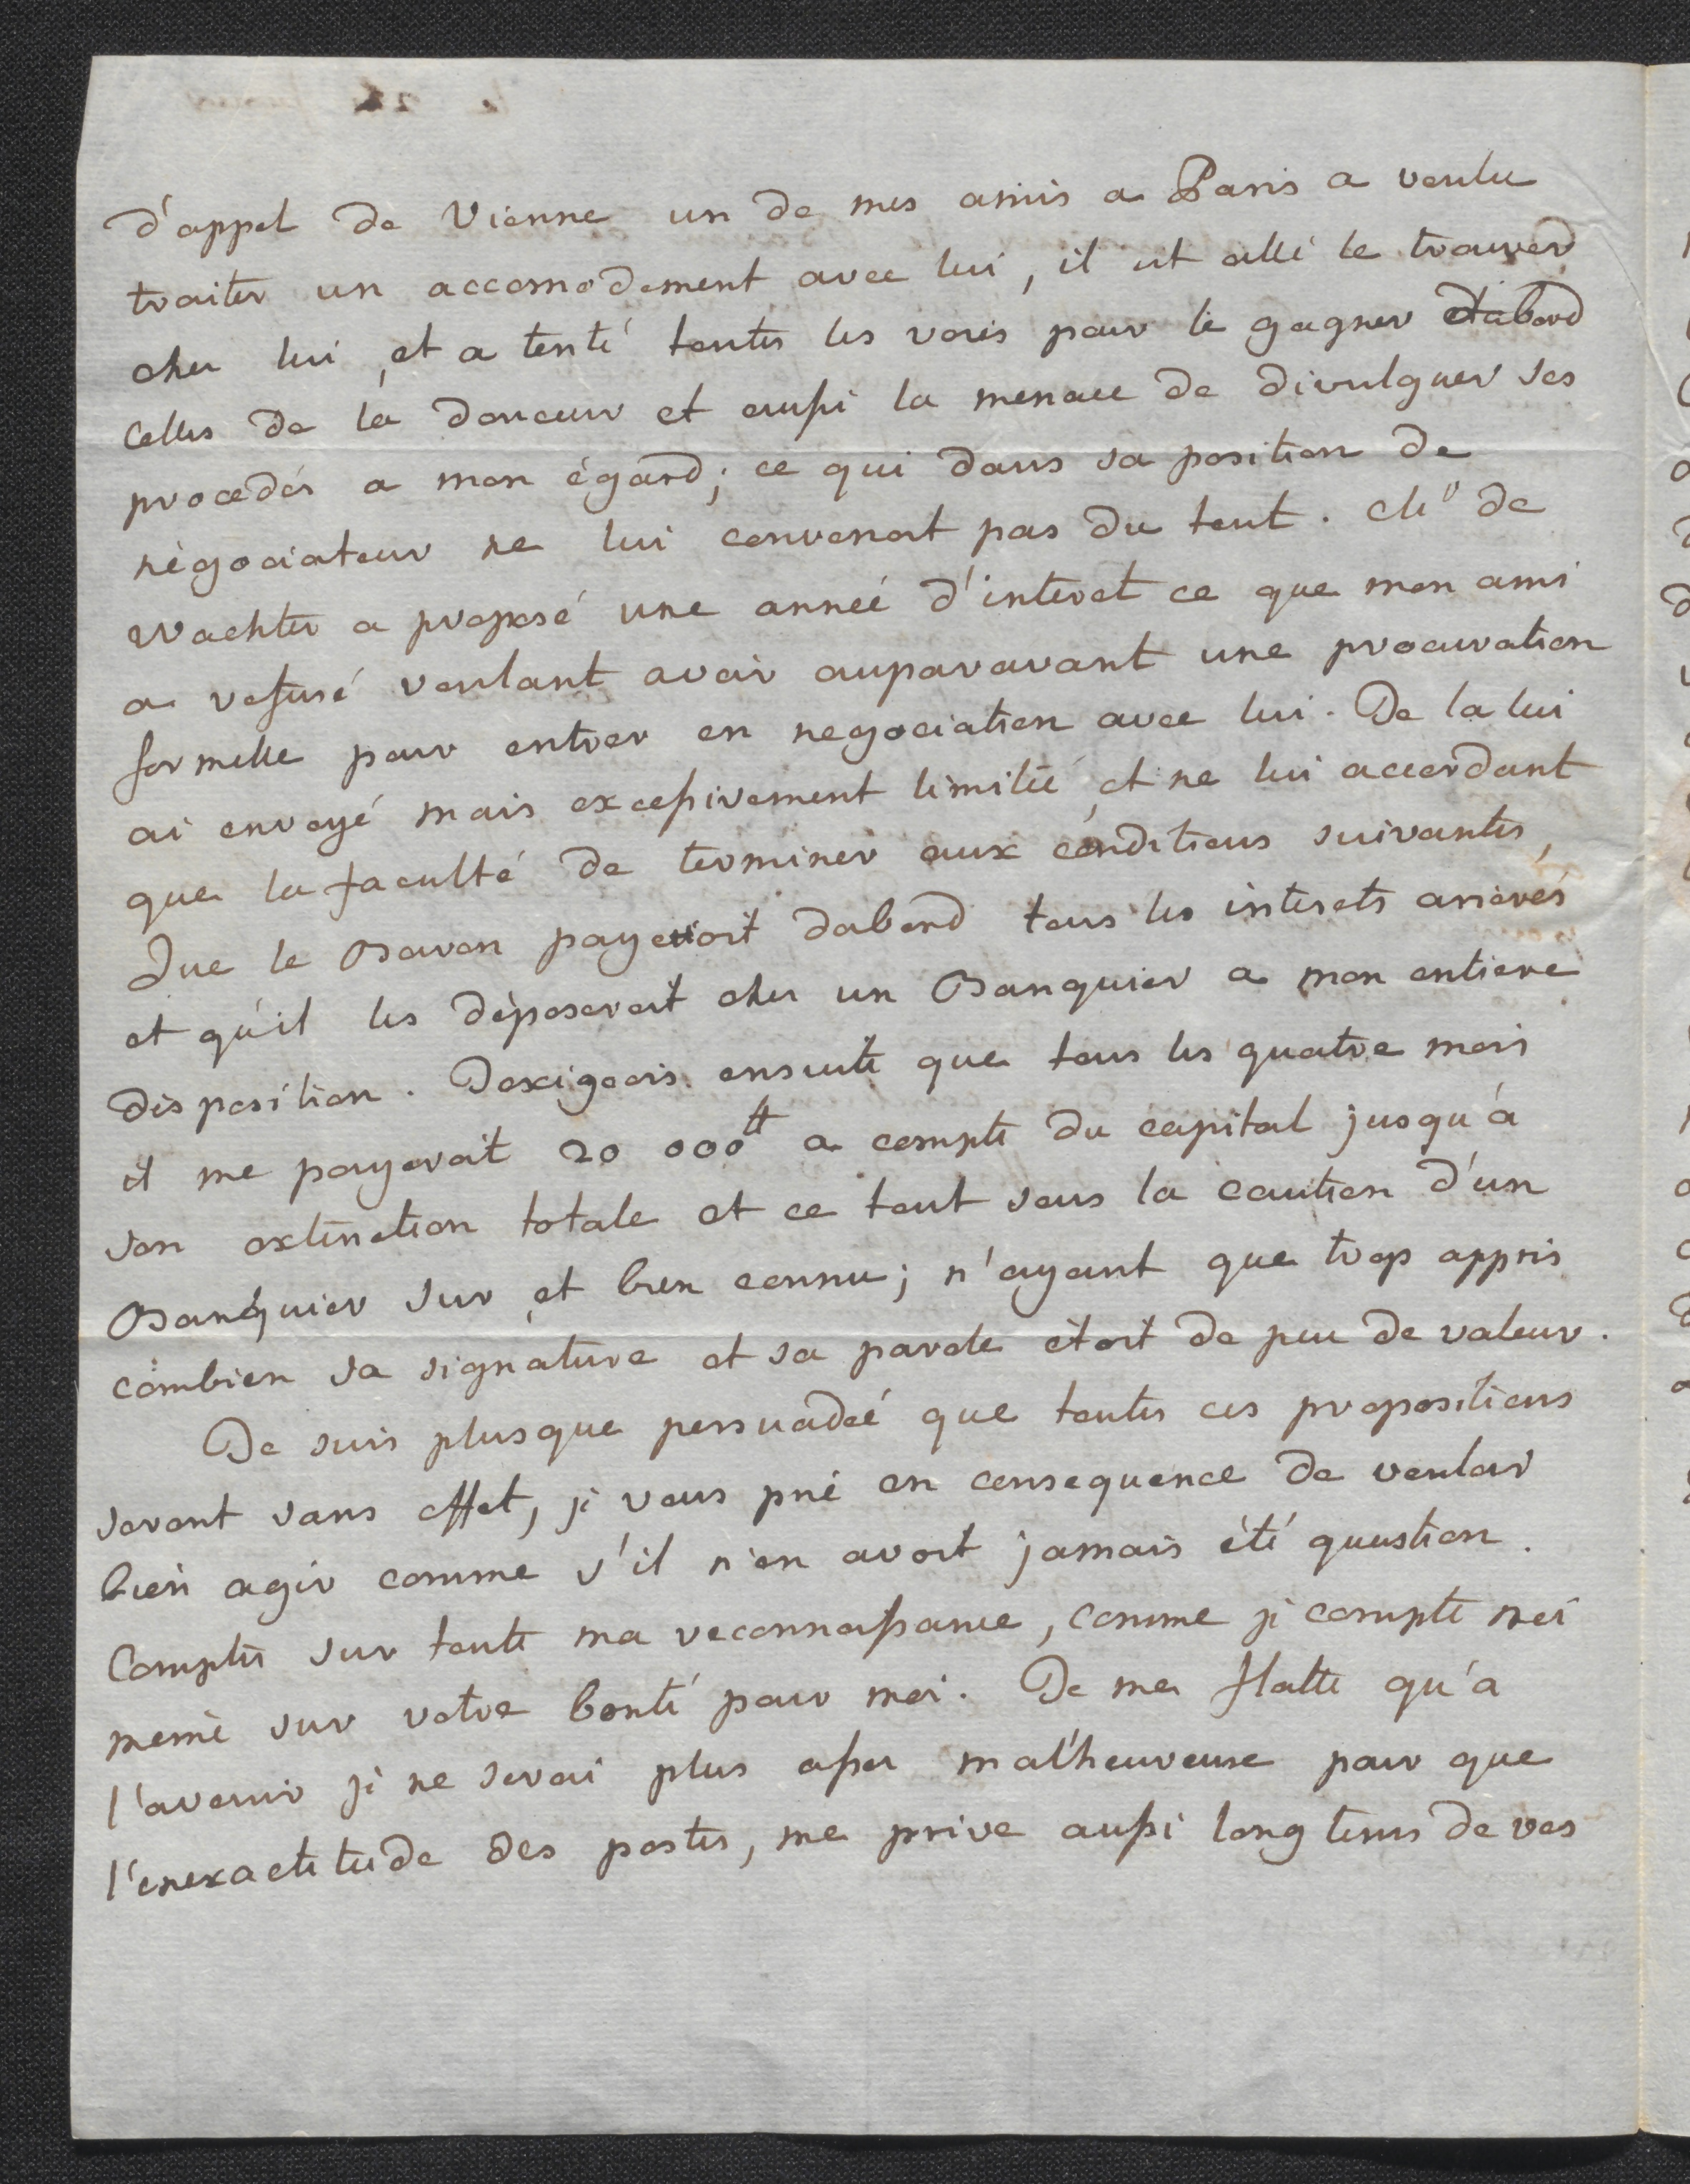 d'appel de Vienne un de mes amis a Paris a voulu
traiter un accomodement avec lui, il est allé le trouver
chez lui, et a tenté toutes les voies pour le gagner d'abord
celles de la douceur et aussi la menace de divulguer ses
procedés a mon égard; ce qui dans sa position de
négociateur ne lui convenoit pas du tout. Mr de
Wachter a proposé une année d'interet ce que mon ami
a refusé voulant avoir auparavant une procuration
formelle pour entrer en negociation avec lui. Je la lui
ai envoyé mais excessivement limitée, et ne lui accordant
que la faculté de terminer aux conditions suivantes,
Que le Baron payeroit dabord tous les interets arierés
et qu'il les déposeroit chez un Banquier a mon entiere
disposition. J'exigeois ensuite que tous les quatre mois
il me payeroit 20 000tt a compte du capital jusqu'à
son extinction totale et ce tout sous la caution d'un
Banquier sur, et bien connu; n'ayant que trop appris
combien sa signature et sa parole étoit de peu de valeur.
Je suis plusque persuadée que toutes ces propositions
seront sans effet, je vous prie en consequence de vouloir
bien agir comme s'il n'en avoit jamais été question.
Comptes sur toute ma reconnaissance, comme je compte moi
meme sur votre bonté pour moi. Je me flatte qu'a
l'avenir je ne serai plus assez malheureuse pour que
l'inexactitude des postes, me prive aussi long tems de vos